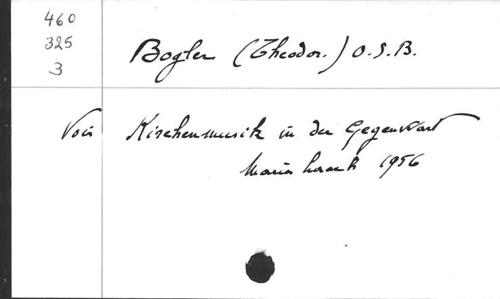 460
325
3
Bogler (Theodor.) O.S.B.
Voir Kirchenmusik in der Gegenwart
Maria Laach 1956